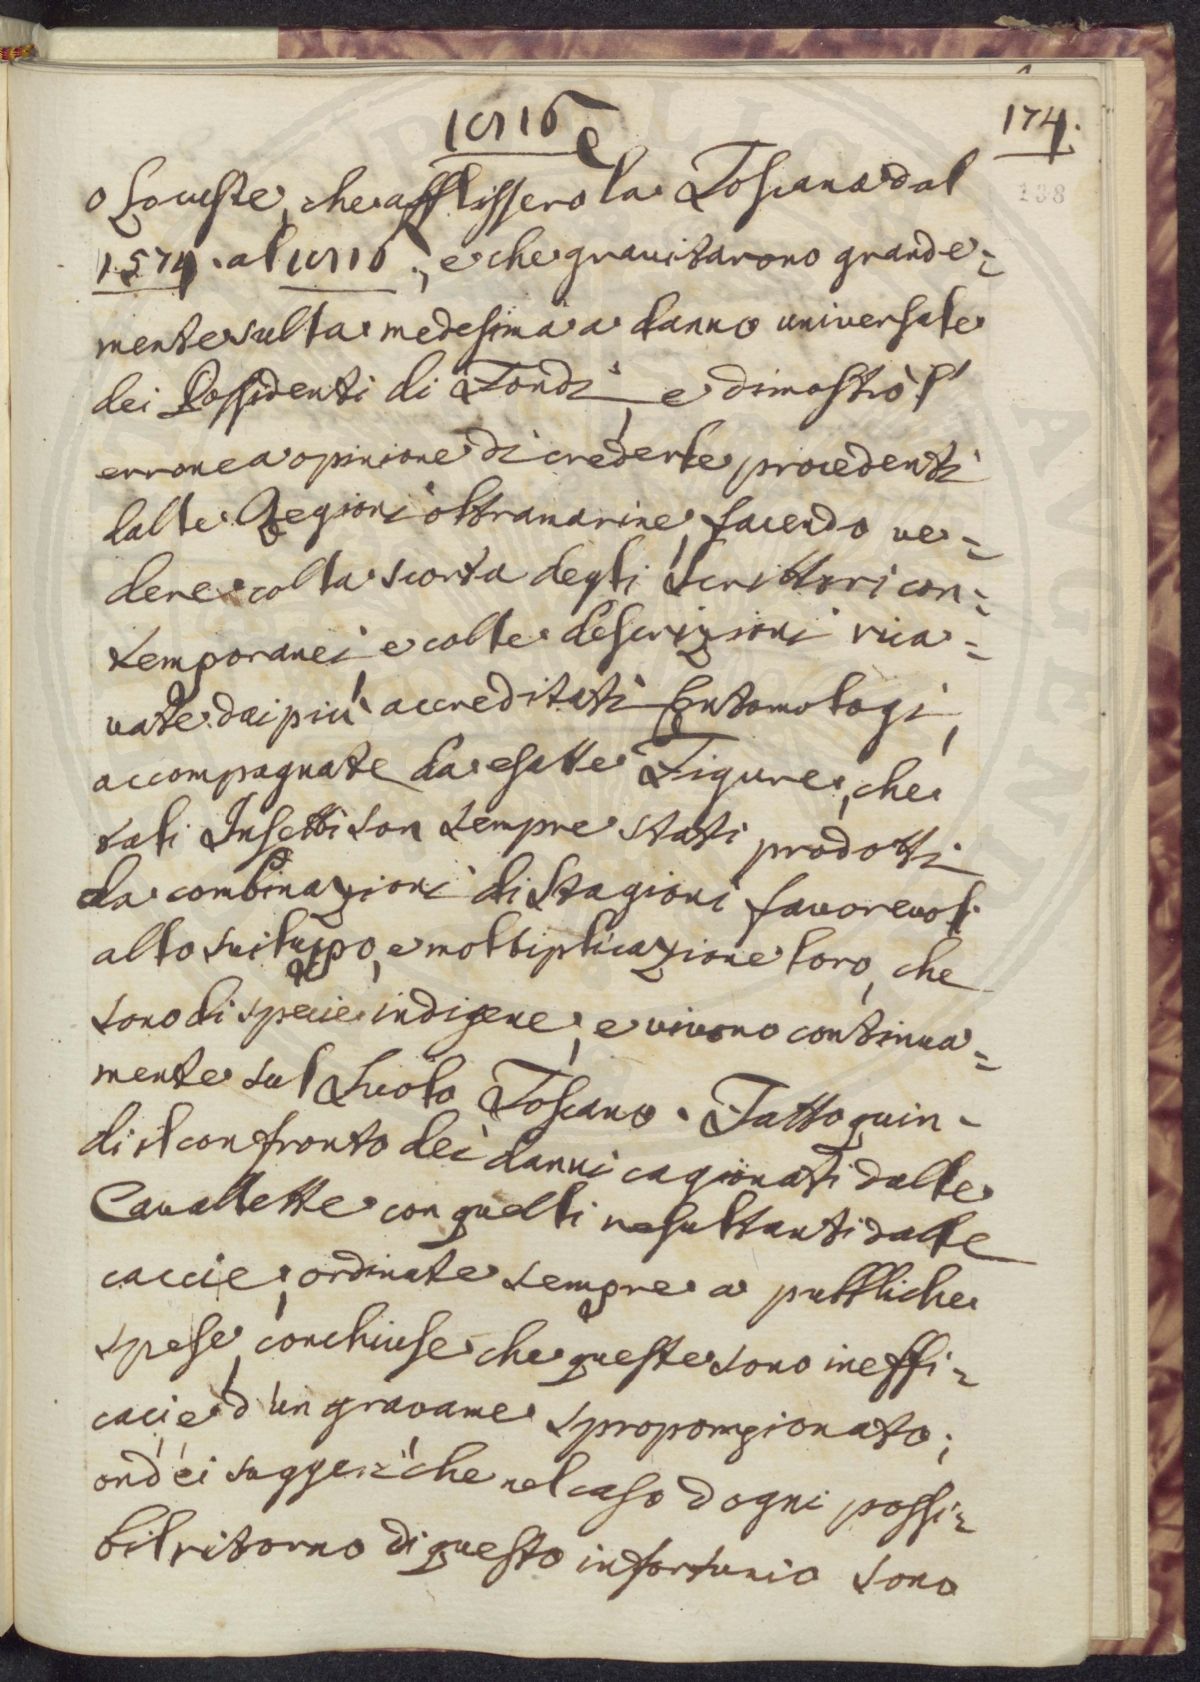 1716
174.
138
o Locuste, che afflissero la Toscana dal
1574. al 1716, e che gravitarono grande=
mente sulla medesima a danno universale
dei Possidenti di Fondi, e dimostrò l'
erronea opinione di crederle procedenti
dalle Regioni oltramarine, facendo ve=
dere colla scorta degli Scrittori con=
temporanei e colle descrizioni rica=
vate dai più accreditati Entomologi,
accompagnate da esatte Figure, che
tali Insetti son sempre stati prodotti
da combinazioni di Stagioni favorevoli
allo sviluppo, e moltiplicazione loro, che
sono di specie indigene, e vivono continua=
mente sul Suolo Toscano. Fatto quin-
di il confronto dei danni cagionati dalle
Cavallette con quelli resultanti dalle
caccie, ordinate sempre a pubbliche
spese, conchiuse che queste sono ineffi=
caci e d'un gravame sproporzionato;
ond'ei suggerì che nel caso d'ogni possi=
bil ritorno di questo infortunio sono